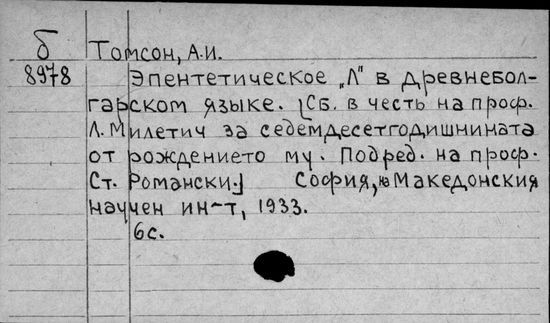 б Томсон, А.И.
8978 Эпентетическое „Л" в древнебол-
гарском языке. [Сб. в честь на проф.
Л. Милетич за седемдесетгодишнината
от рождението му. Подред. на проф.
Ст. Романски.] София, Македонския
научен ин-т, 1933.
6с.